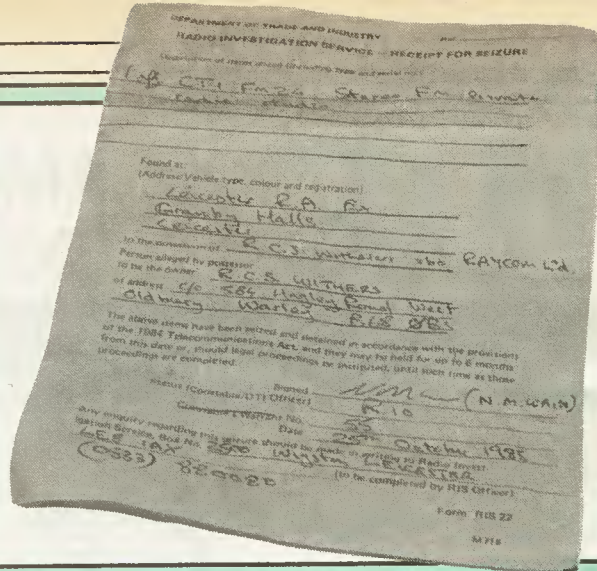 DEPARTMENT OF TRADE AND INDUSTRY
RADIO INVESTIGATION SERVICE – RECEIPT FOR SEIZURE
CTE FM 24 Stereo FM
Found at:
(Address/Vehicle type, colour and registration)
Leicester R.A. Ex
Granby Halls
Leicester
In the possession of R.C.S. Withers RAYCOM Ltd.
Person alleged by possessor
to be the owner R.C.S WITHERS
of address c/o 584 Hagley Road West
Oldbury Warley B68 0BS
The above items have been seized and detained in accordance with the provisions
of the 1984 Telecommunications Act, and they may be held for up to 6 months
from this date or, should legal proceedings be instituted, until such time as those
proceedings are completed.
Signed (N.M. WAIN)
Status (Constable/DTI Officer) R10
Warrant No. 55
Date 25th October 1985
Any enquiry regarding this seizure should be made in writing to Radio Invest-
igation Service, Box No. 2500 Wigston LEICESTER
LE8 1AX (to be completed by RIS Officer)
(0533) 820080
Form RIS 22
M718